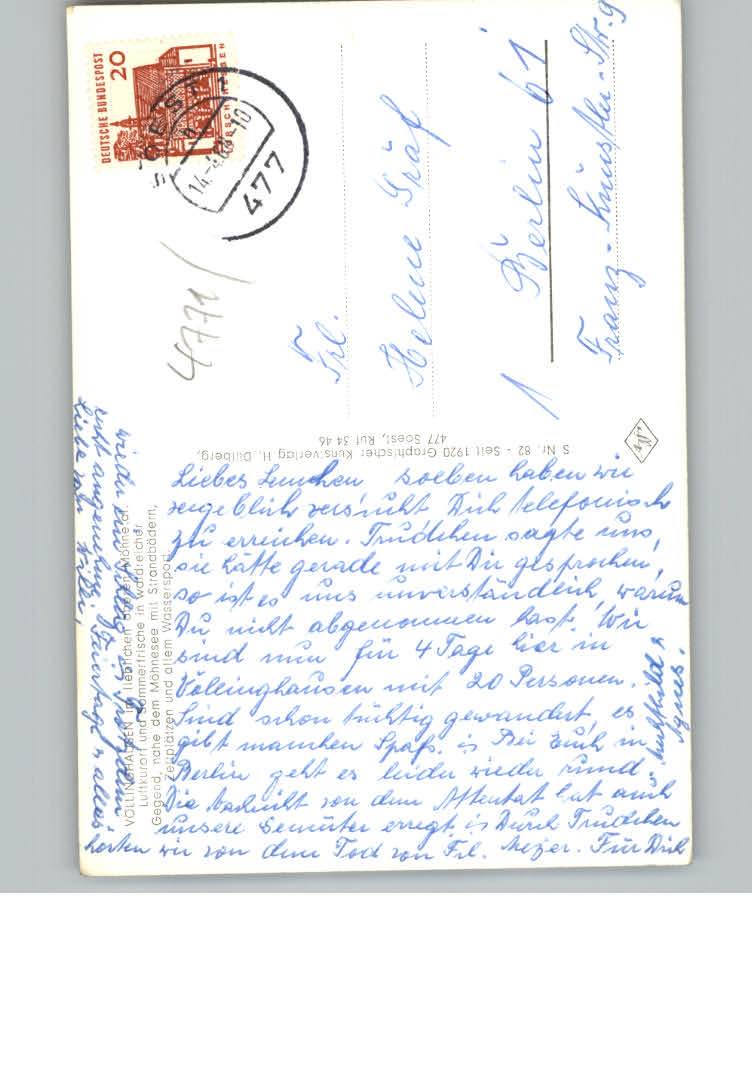 DEUTSCHE BUNDESPOST
20
SOEST
14.-4.68-10
477
4771
Frl.
Helene Gräf
1 Berlin 61
Franz-Künstler-Str. 9
S Nr. 82 - Seit 1920 Graphischer Kunstverlag H. Dülberg,
477 Soest, Ruf 34 46
VÖLLINGHAUSEN im lieblichen oberen Möhnetal.
Luftkurort und Sommerfrische in waldreicher
Gegend, nahe dem Möhnesee mit Strandbädern,
Zeltplätzen und allem Wassersport
Liebes Lenchen soeben haben wir
vergeblich versucht Dich telefonisch
zu erreichen. Trudchen sagte uns,
sie hätte gerade mit Dir gesprochen,
so ist es uns unverständlich, warum
Du nicht abgenommen hast. Wir
sind nun für 4 Tage hier in
Völlinghausen mit 20 Personen.
Sind schon tüchtig gewandert, es
gibt manchen Spaß. Bei Euch in
Berlin geht es leider wieder rund.
Die Nachricht von dem Attentat hat auch
unsere Gemüter erregt. Durch Trudchen
hörten wir von dem Tod von Frl. Meyer. Für Dich
recht angenehme Feiertage & alles
Liebe von Allen,
Agnes.